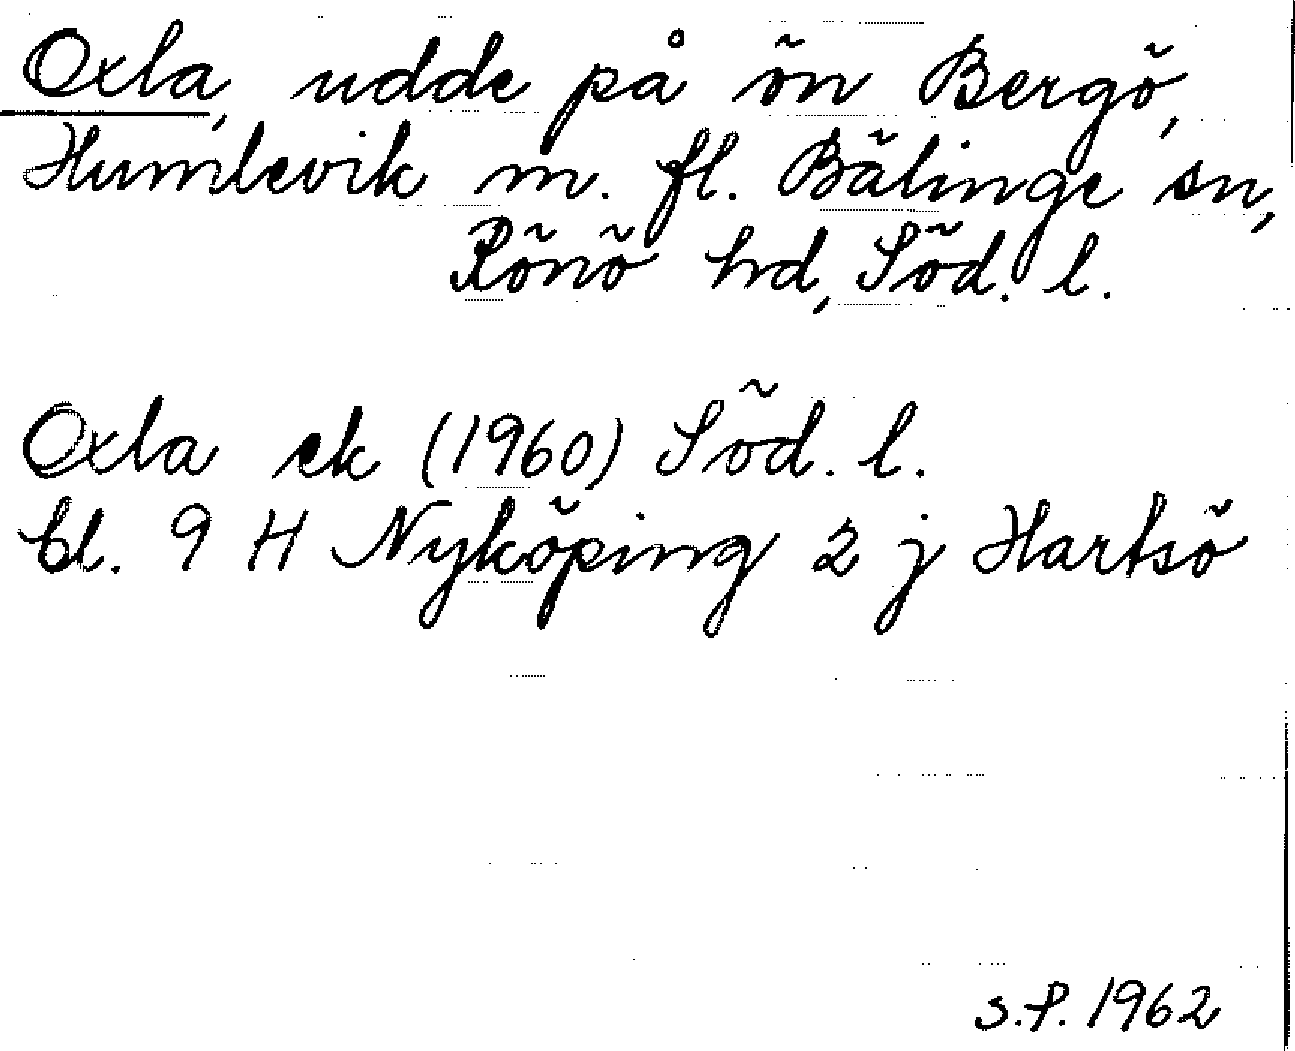 Oxla, udde på ön Bergö,
Humlevik m. fl. Bälinge sn,
Rönö hd, Söd. l.
Oxla ek (1960) Söd. l.
bl. 9 H Nyköping 2 j Hartsö
S.P. 1962